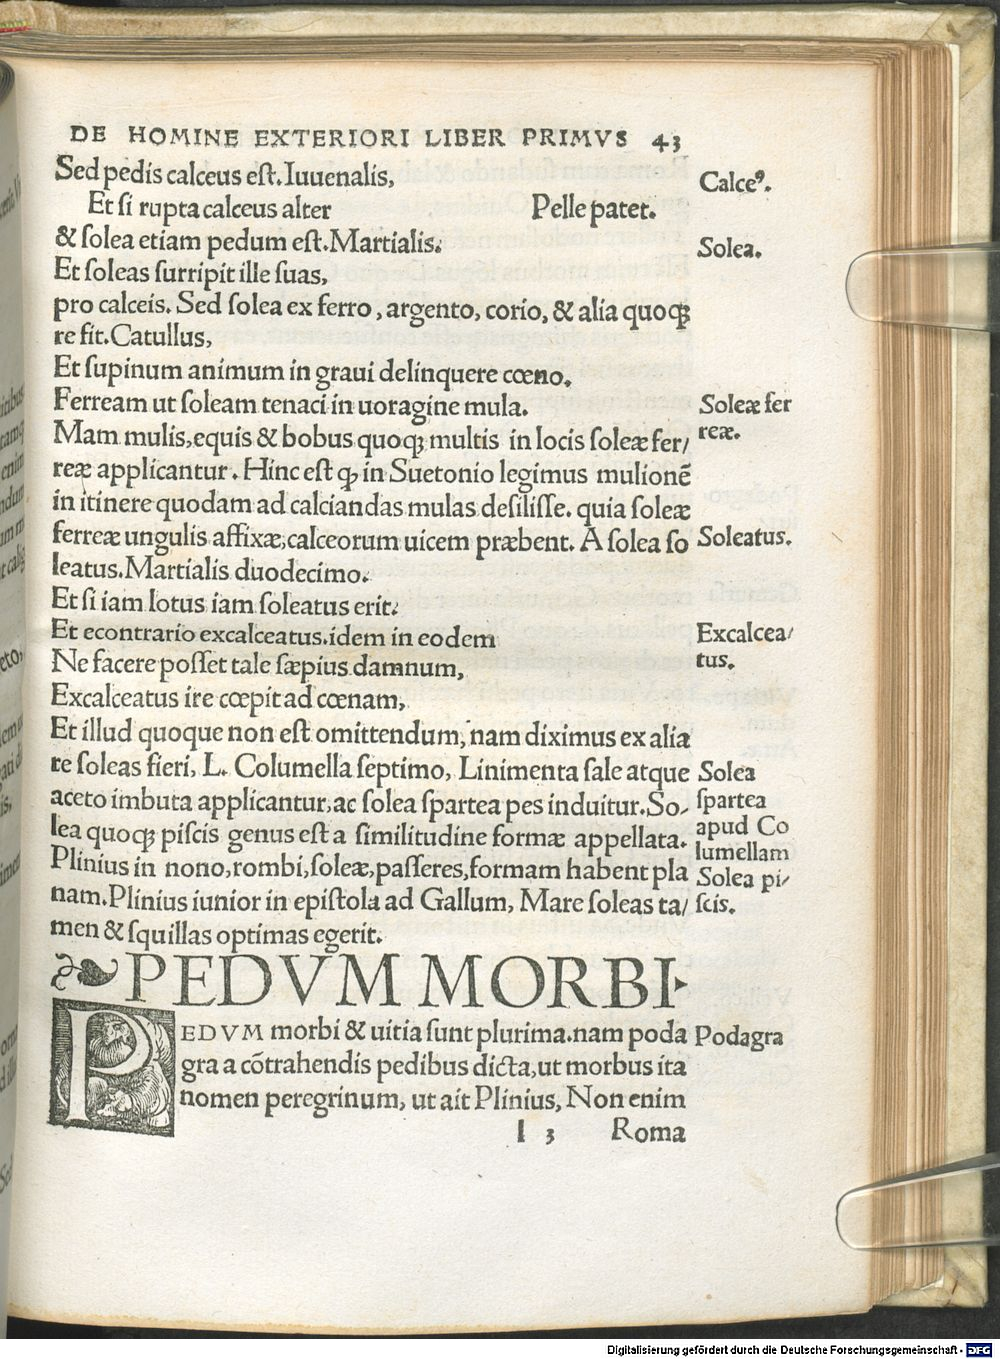 DE HOMINE EXTERIORI LIBER PRIMVS 43
Sed pedis calceus est. Iuuenalis,
Calceꝰ.
Et si rupta calceus alter Pelle patet.
& solea etiam pedum est. Martialis.
Solea.
Et soleas surripit ille suas,
pro calceis. Sed solea ex ferro, argento, corio, & alia quoqꝫ
re fit. Catullus,
Et supinum animum in graui delinquere cœno.
Ferream ut soleam tenaci in uoragine mula.
Soleæ fer
Mam mulis, equis & bobus quoqꝫ multis in locis soleæ fer/
reæ.
reæ applicantur. Hinc est ꝙ in Suetonio legimus mulionẽ
in itinere quodam ad calciandas mulas desilisse. quia soleæ
ferreæ ungulis affixæ, calceorum uicem præbent. A solea so
Soleatus.
leatus. Martialis duodecimo.
Et si iam lotus iam soleatus erit.
Et econtrario excalceatus. idem in eodem
Excalcea/
Ne facere posset tale sæpius damnum,
tus.
Excalceatus ire cœpit ad cœnam,
Et illud quoque non est omittendum, nam diximus ex alia
re soleas fieri, L. Columella septimo, Linimenta sale atque
Solea
aceto imbuta applicantur, ac solea spartea pes induitur. So/
spartea
lea quoqꝫ piscis genus est a similitudine formæ appellata.
apud Co
lumellam
Plinius in nono, rombi, soleæ, passeres, formam habent pla
Solea pi/
nam. Plinius iunior in epistola ad Gallum, Mare soleas ta/
scis.
men & squillas optimas egerit.
❧ PEDVM MORBI.
PEDVM morbi & uitia sunt plurima. nam poda
Podagra
gra a cõtrahendis pedibus dicta, ut morbus ita
nomen peregrinum, ut ait Plinius, Non enim
I 3 Roma
Digitalisierung gefördert durch die Deutsche Forschungsgemeinschaft - DFG